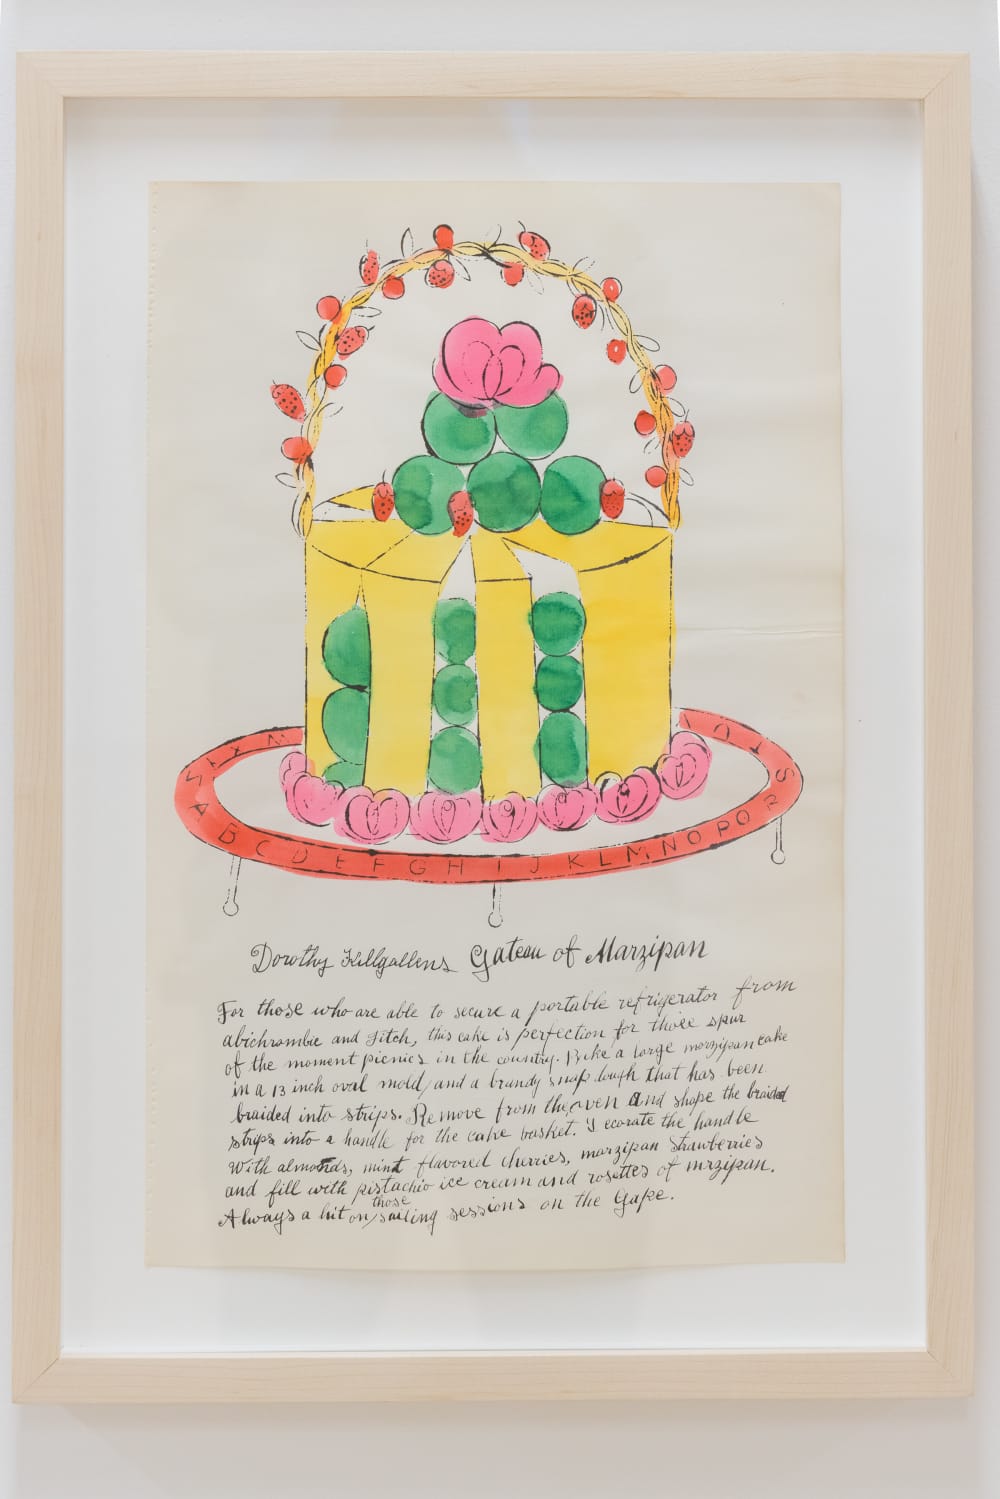 A B C D E F G H I J K L M N O P O R S T U
W X Y
Dorothy Killgallens Gateau of Marzipan
For those who are able to secure a portable refrigerator from
abichrombie and Fitch, this cake is perfection for those spur
of the moment picnics in the country. Bake a large marzipan cake
in a 13 inch oval mold, and a brandy snap dough that has been
braided into strips. Remove from the oven and shape the braided
strips into a handle for the cake basket. Decorate the handle
with almonds, mint flavored cherries, marzipan strawberries
and fill with pistachio ice cream and rosettes of mrzipan.
Always a hit on those sailing sessions on the Gape.